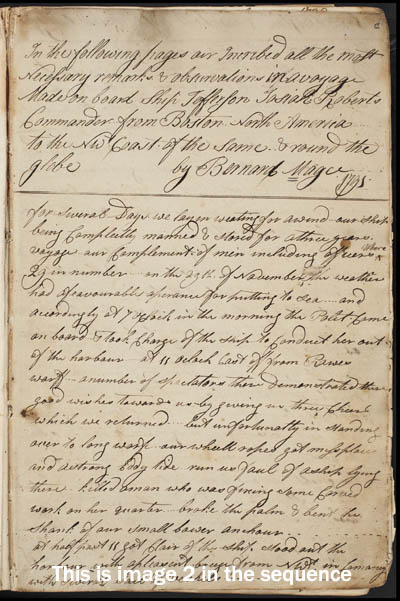 In the following pages are Incribed all the most
Necessary remarks & observations in a voyage
Made on board Ship Jefferson Josiah Roberts
Commander from Boston North America
to the NW Coast of the Same & round the
globe by Bernard Magee
1791
for Several Days we layen weating for a wend our Ship
being Compleetly manned & stored for a three years
voyage our Complement of men including officers where
23 in number on the 29th of November the weather
had a favourable aperance for putting to Sea and
acordingly at 7 oclock in the morning the Pilot Came
on board & took Charge of the ship to Conduct her out
of the harbour at 11 oclock Cast off from
warf a number of Spectators there demonstrated there
good wishes towards us by giving us three Cheers
which we returned but unfortunatly in standing
over to long warf our wheell ropes got misplace
and a strong Eddy tide run us faul of a ship lying
there killed a man who was fixing some Carved
work on her quarter brake the palm & bent the
shank of our small bower anchour
at half past 11 got Clair of the Ship stood out the
harbour with a pleasant from in
with Several
This is image 2 in the sequence